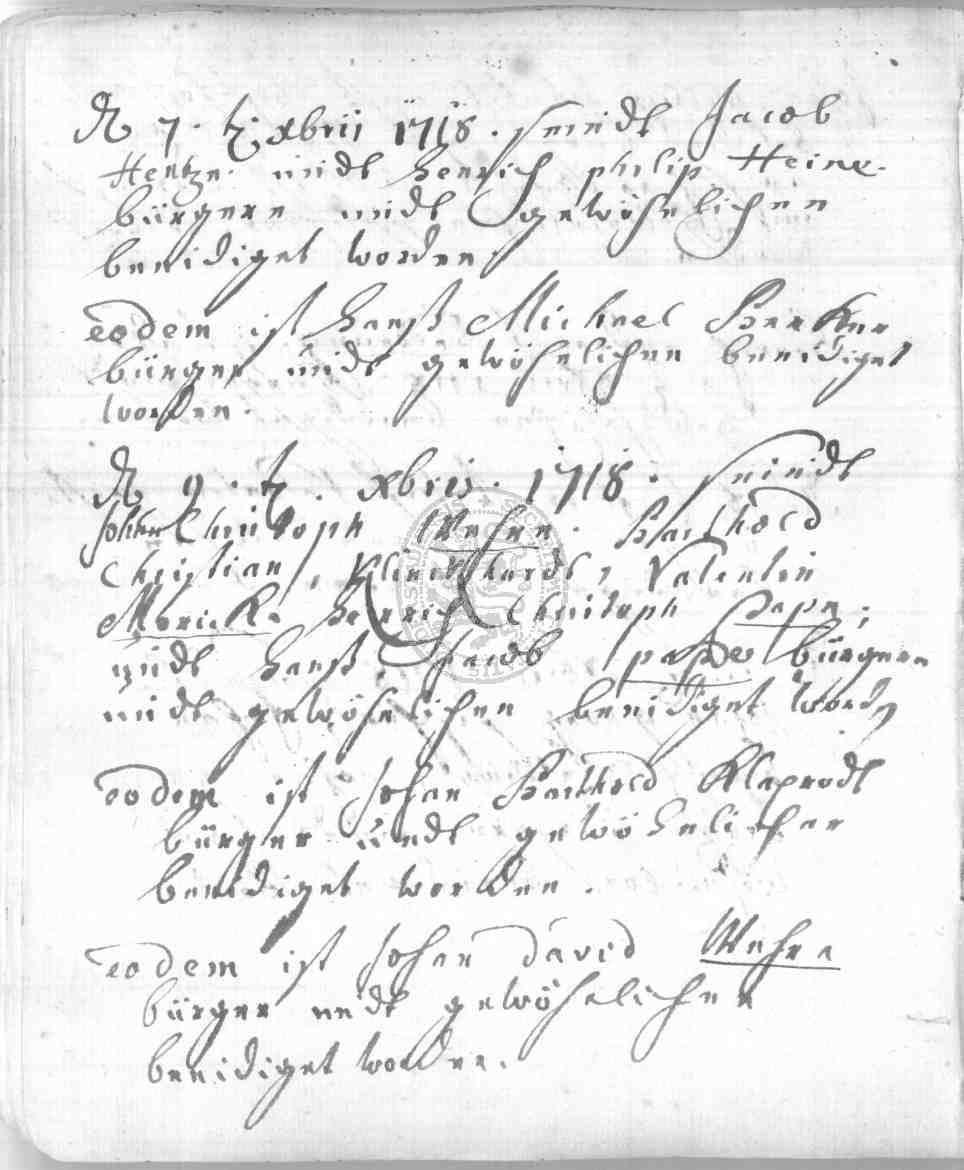 dn 7. t. xbris 1718. seindt Jacob
Hentze undt Henrich philip Heine
bürgere undt gewöhnlichen
beeidiget worden.
eodem ist Hanß Michael
bürger undt gewöhnlichen beeidiget
worden.
dn 9. t. xbris. 1718. seindt
Johan Christoph Wehre. Barthold
Christian Klinckhardt, Valentin
Henrich Christoph pape,
undt Hanß Jacob pape bürgere
undt gewöhnlichen beeidiget worden
eodem ist Johan Barthold Klaprodt
bürger undt gewöhnlicher
beeidiget worden.
eodem ist Johan david Wehre
bürger undt gewöhnlichen
beeidiget worden.